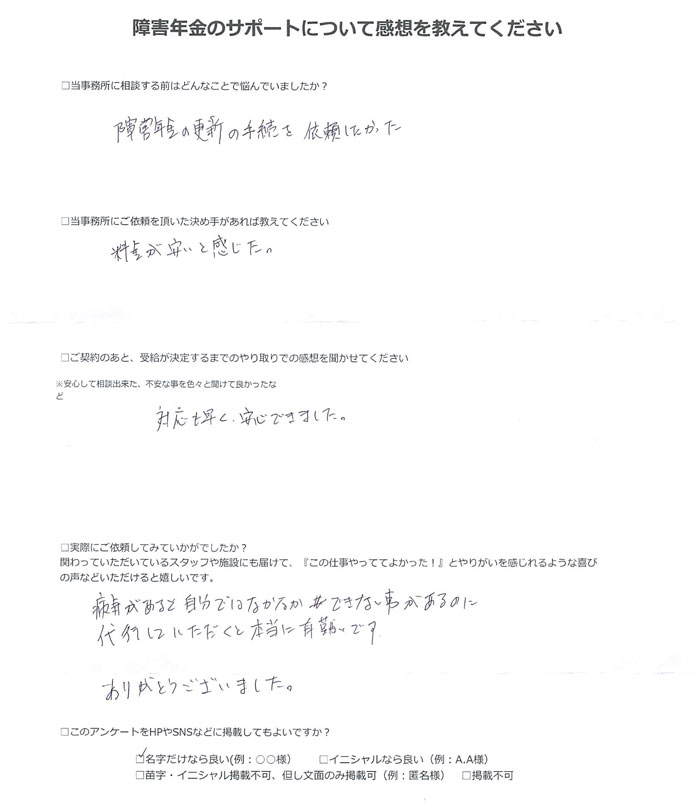 障害年金のサポートについて感想を教えてください
□当事務所に相談する前はどんなことで悩んでいましたか？
障害年金の更新の手続を 依頼したかった
□当事務所にご依頼を頂いた決め手があれば教えてください
料金が安いと感じた。
□ご契約のあと、受給が決定するまでのやり取りでの感想を聞かせてください
※安心して相談出来た、不安な事を色々と聞けて良かったな
ど
対応も早く、安心できました。
□実際にご依頼してみていかがでしたか？
関わっていただいているスタッフや施設にも届けて、『この仕事やっててよかった！』とやりがいを感じれるような喜び
の声などいただけると嬉しいです。
病気があると自分ではなかなかできない事があるのに
代行していただくと本当に有難いです
ありがとうございました。
□このアンケートをHPやSNSなどに掲載してもよいですか？
☑名字だけなら良い(例：○○様） □イニシャルなら良い（例：A.A様）
□苗字・イニシャル掲載不可、但し文面のみ掲載可（例：匿名様） □掲載不可